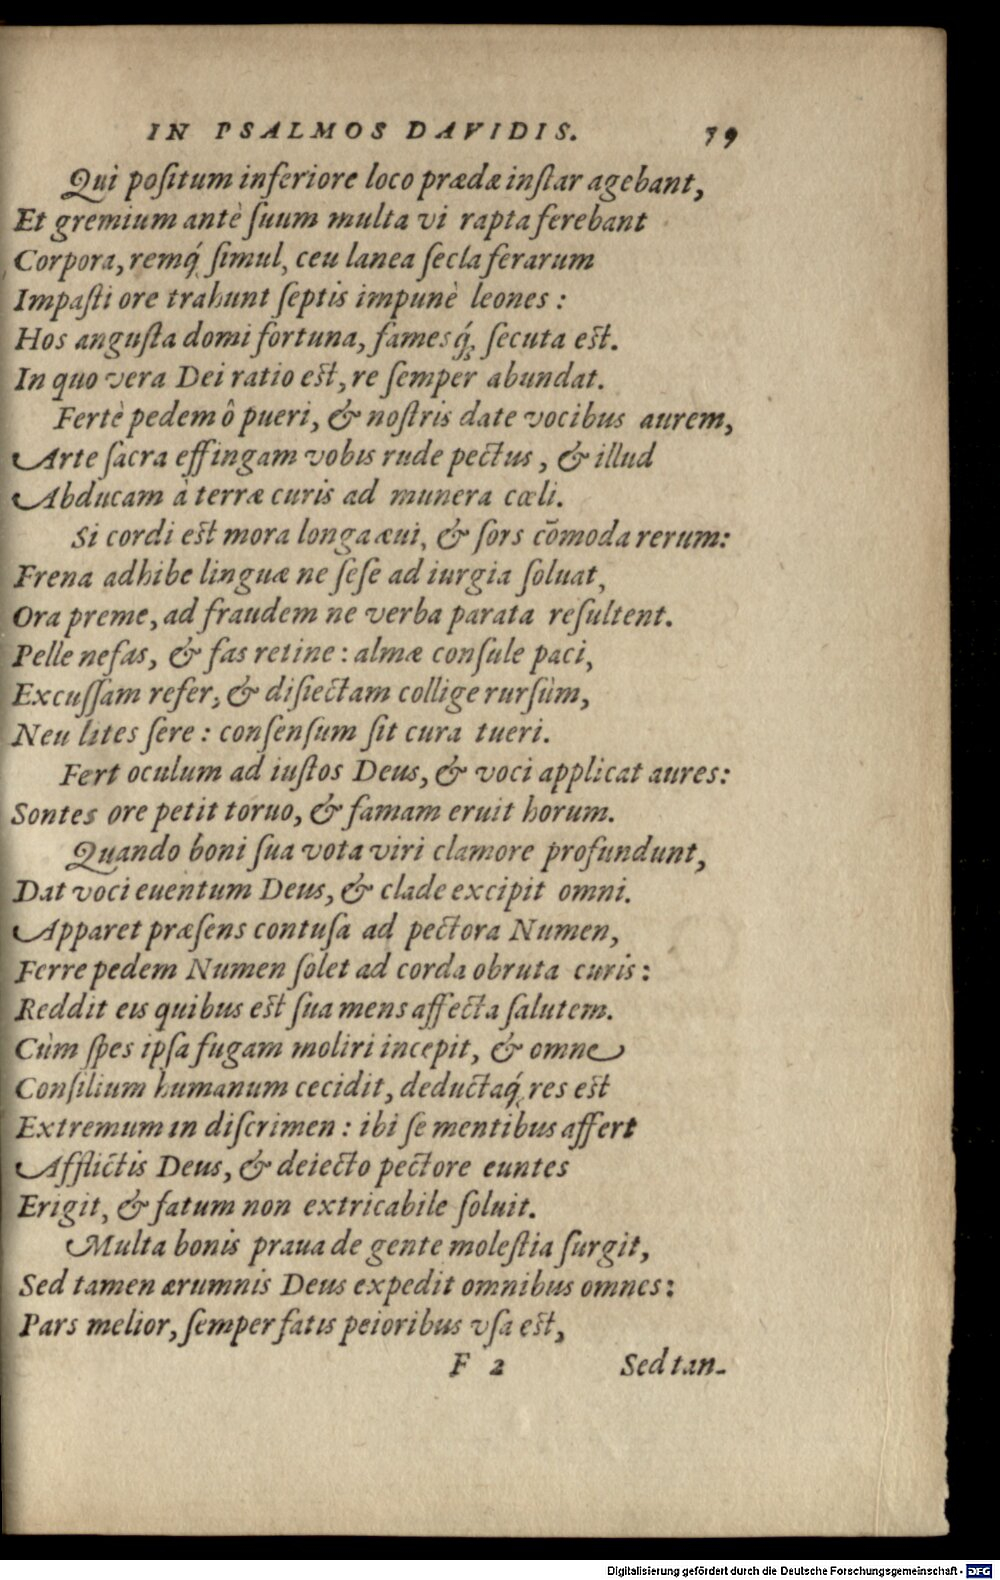 IN PSALMOS DAVIDIS. 39
Qui poſitum inferiore loco prædæ inſtar agebant,
Et gremium antè ſuum multa vi rapta ferebant
Corpora, remq́; ſimul, ceu lanea ſecla ferarum
Impaſti ore trahunt ſeptis impunè leones:
Hos anguſta domi fortuna, famesq́; ſecuta eſt.
In quo vera Dei ratio eſt, re ſemper abundat.
Fertè pedem ô pueri, & noſtris date vocibus aurem,
Arte ſacra effingam vobis rude pectus, & illud
Abducam à terræ curis ad munera cœli.
Si cordi eſt mora longa æui, & ſors cõmoda rerum:
Frena adhibe linguæ ne ſeſe ad iurgia ſoluat,
Ora preme, ad fraudem ne verba parata reſultent.
Pelle nefas, & fas retine: almæ conſule paci,
Excuſſam refer, & diſiectam collige rurſùm,
Neu lites ſere: conſenſum ſit cura tueri.
Fert oculum ad iuſtos Deus, & voci applicat aures:
Sontes ore petit toruo, & famam eruit horum.
Quando boni ſua vota viri clamore profundunt,
Dat voci euentum Deus, & clade excipit omni.
Apparet præſens contuſa ad pectora Numen,
Ferre pedem Numen ſolet ad corda obruta curis:
Reddit eis quibus eſt ſua mens affecta ſalutem.
Cùm ſpes ipſa fugam moliri incepit, & omne
Conſilium humanum cecidit, deductaq́; res eſt
Extremum in diſcrimen: ibi ſe mentibus affert
Afflictis Deus, & deiecto pectore euntes
Erigit, & fatum non extricabile ſoluit.
Multa bonis praua de gente moleſtia ſurgit,
Sed tamen ærumnis Deus expedit omnibus omnes:
Pars melior, ſemper fatis peioribus vſa eſt,
F 2 Sed tan-
Digitalisierung gefördert durch die Deutsche Forschungsgemeinschaft - DFG